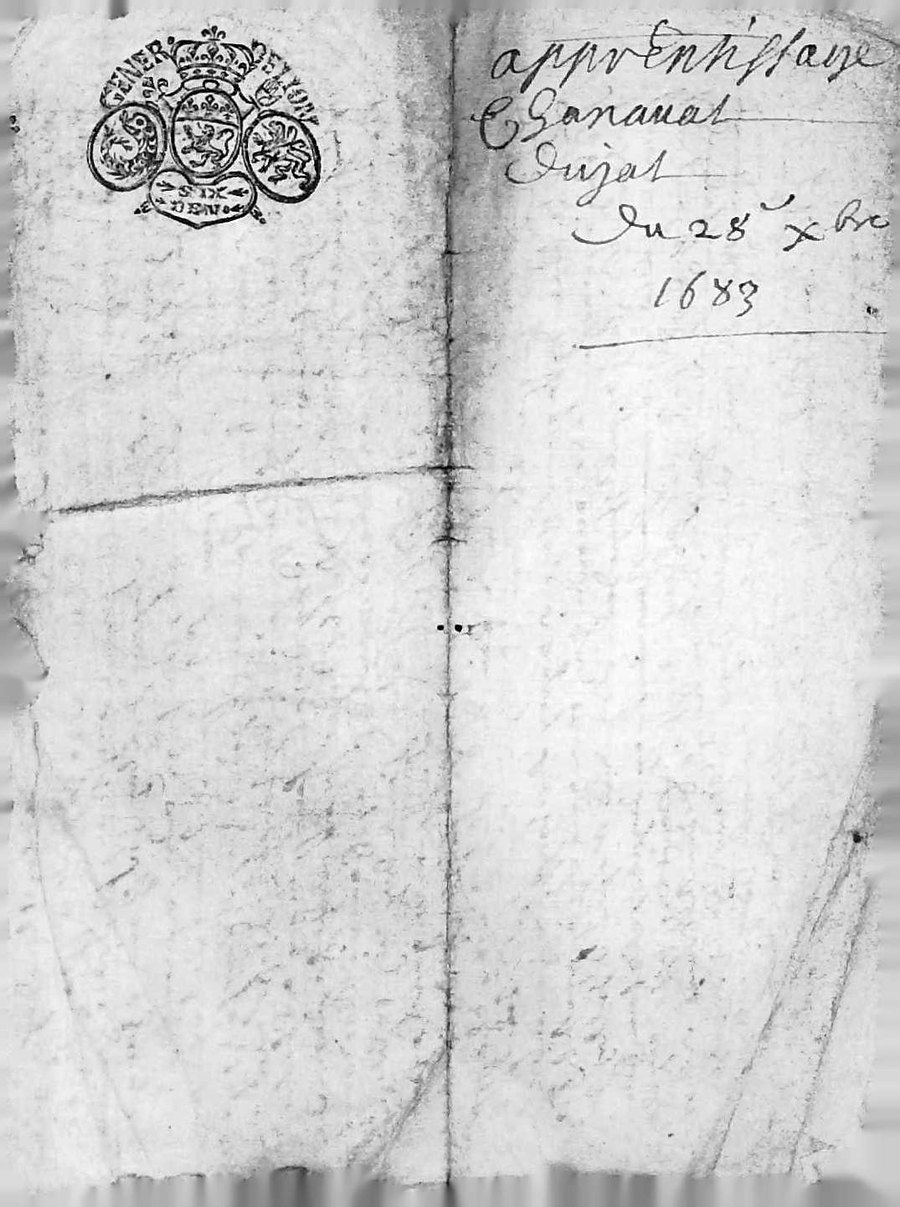 GENER. DE LION
SIX
DEN.
apprentissage
Chanauat
Dujat
Du 28e xbre
1683